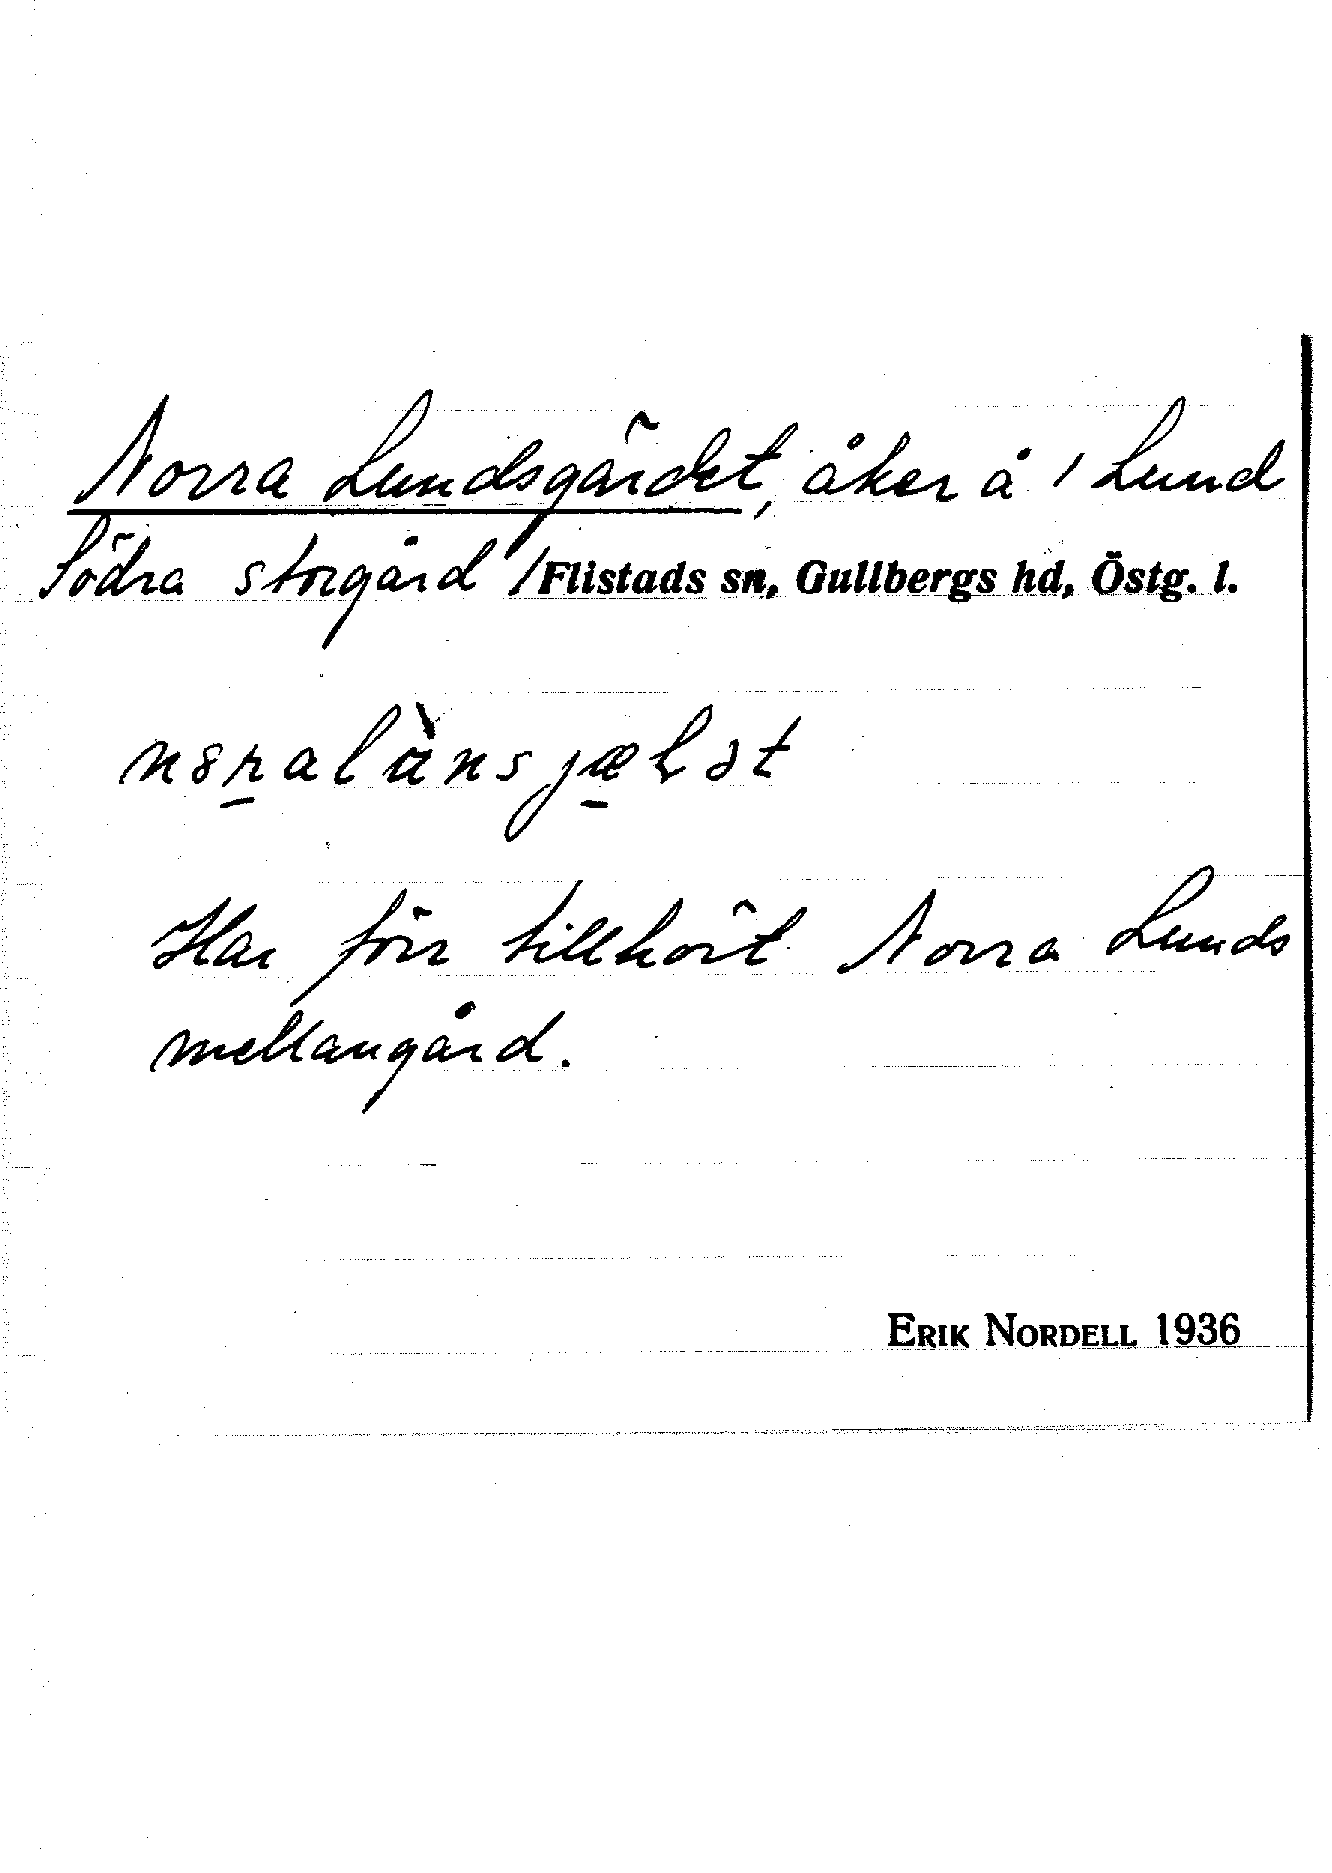 Norra Lundsgärdet, åker å 1 Lund
Södra storgård /Flistads sn, Gullbergs hd, Östg. l.
Har förr tillhört Norra Lunds
mellangård.
ERIK NORDELL 1936